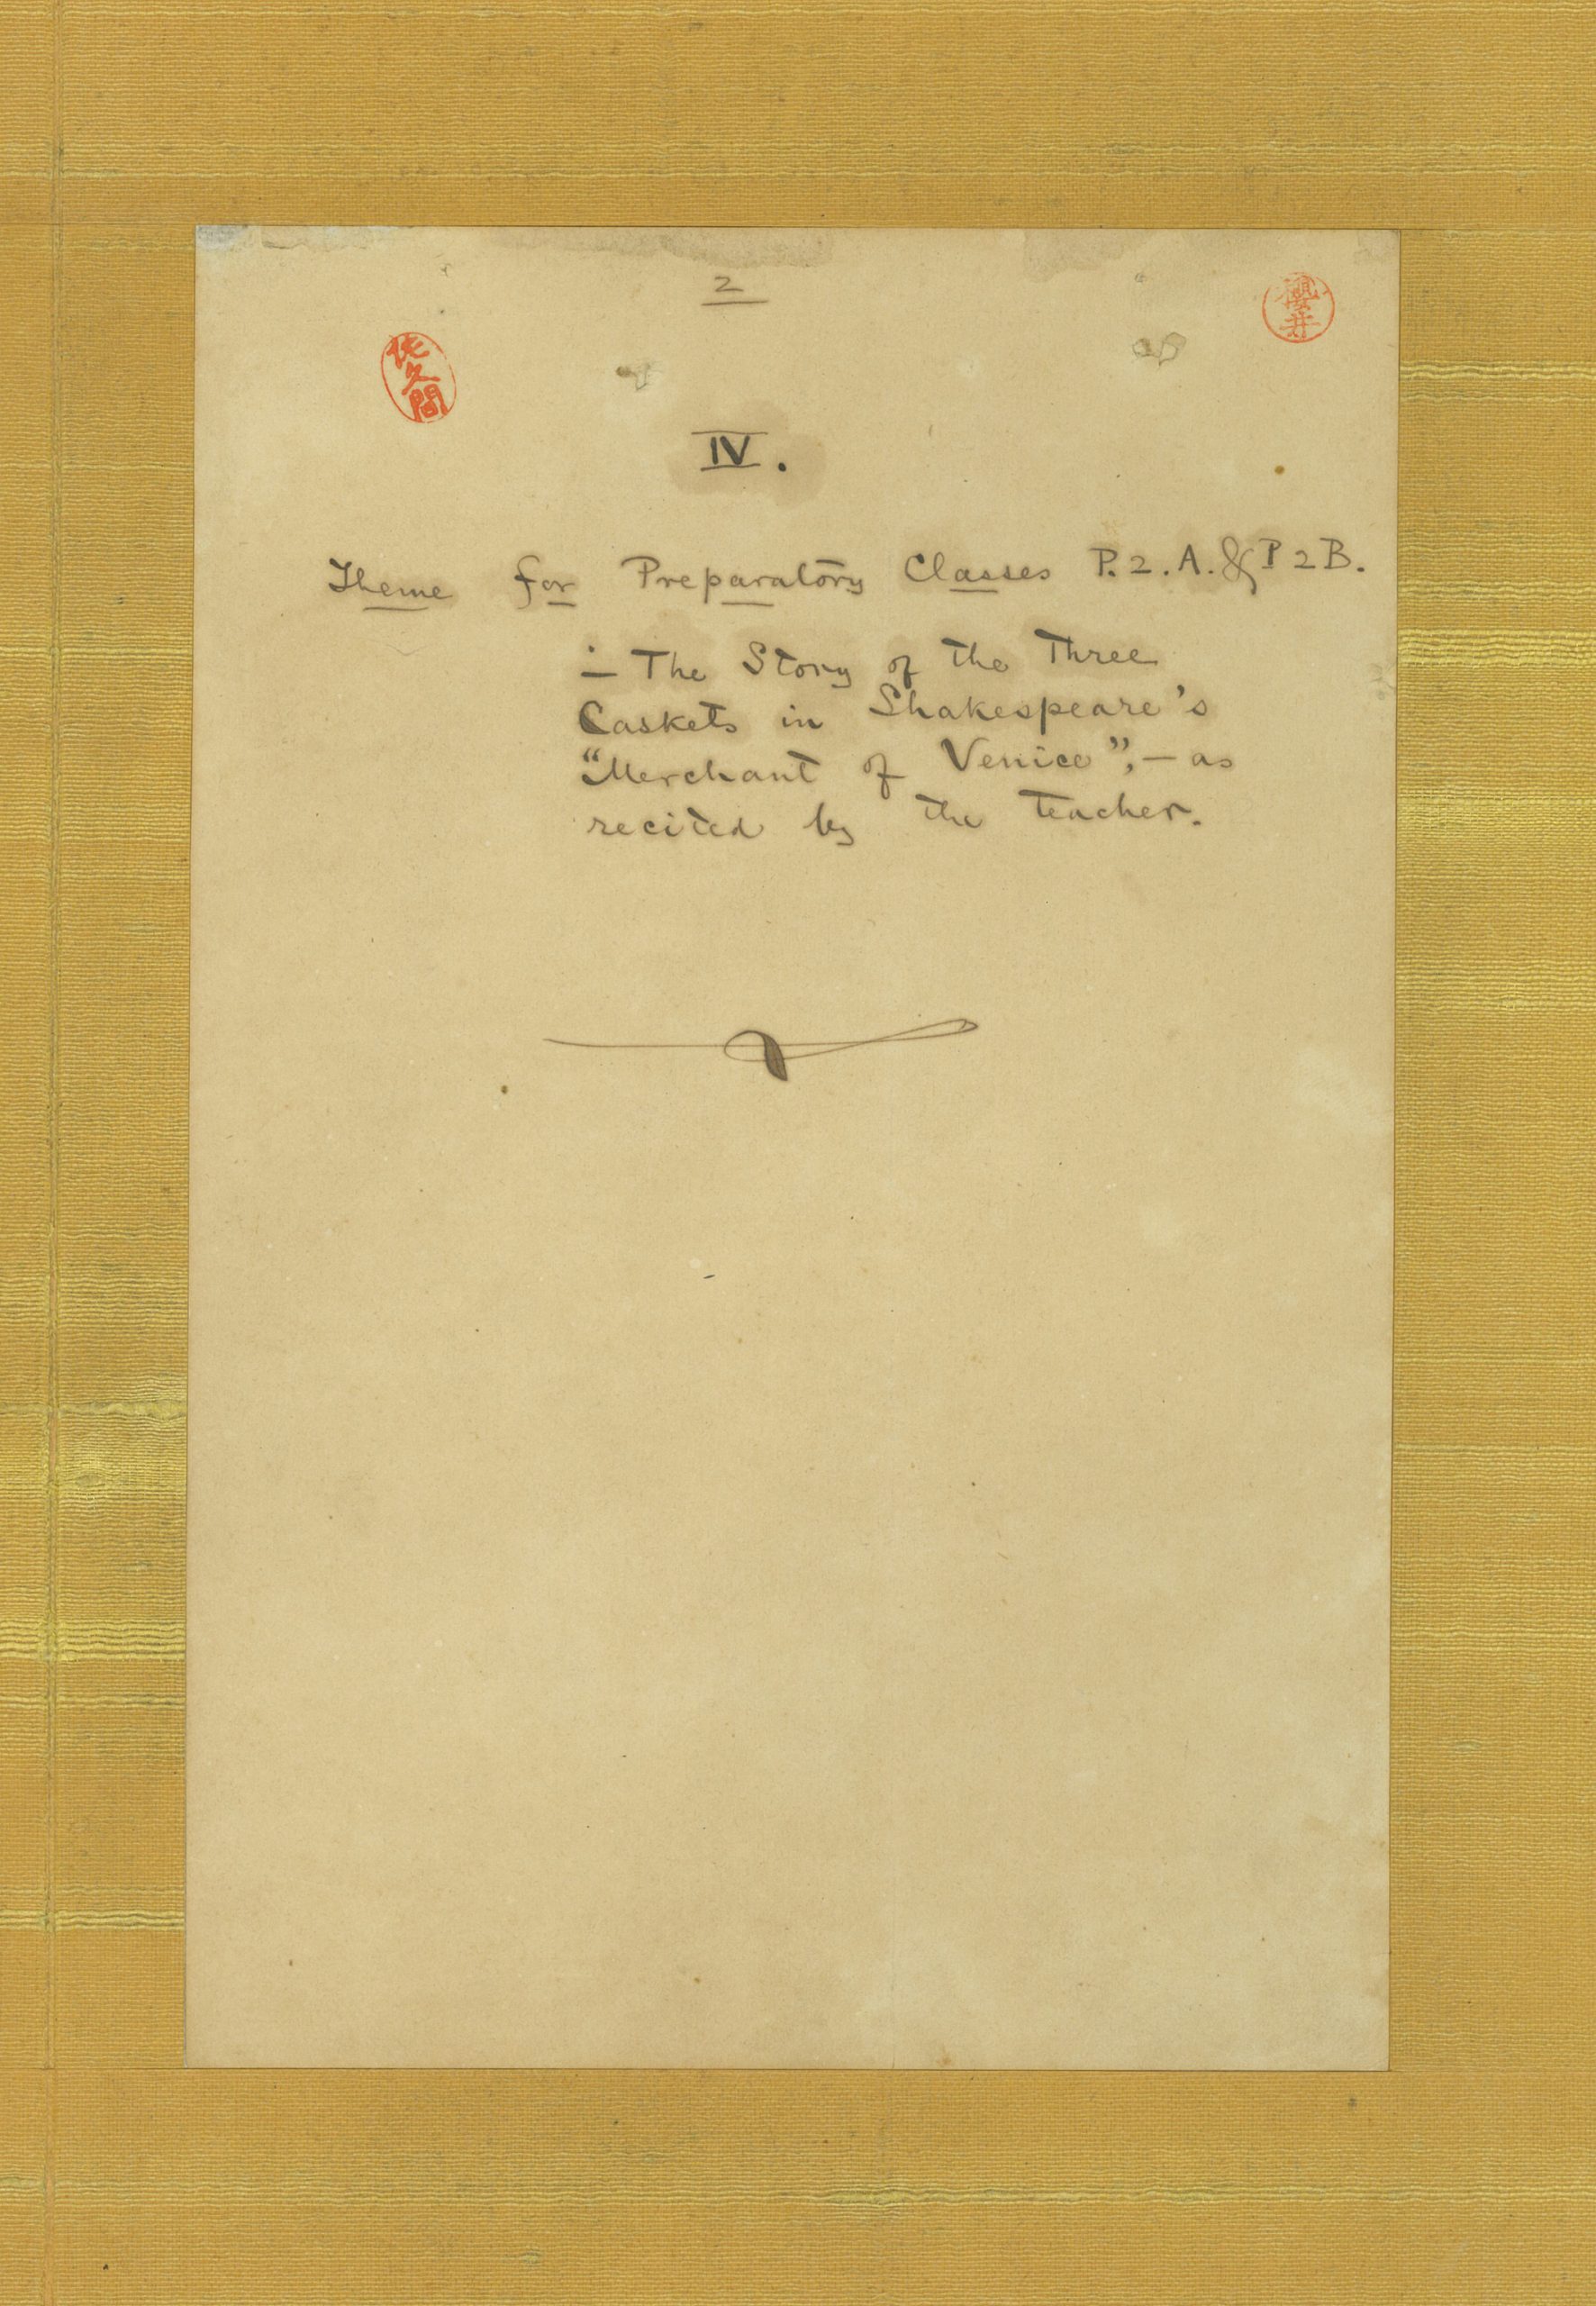 2
櫻井
佐久間
IV.
Theme for Preparatory Classes P.2.A. & P2B.
÷ The Story of the Three
Caskets in Shakespeare's
"Merchant of Venice", — as
recited by the teacher.